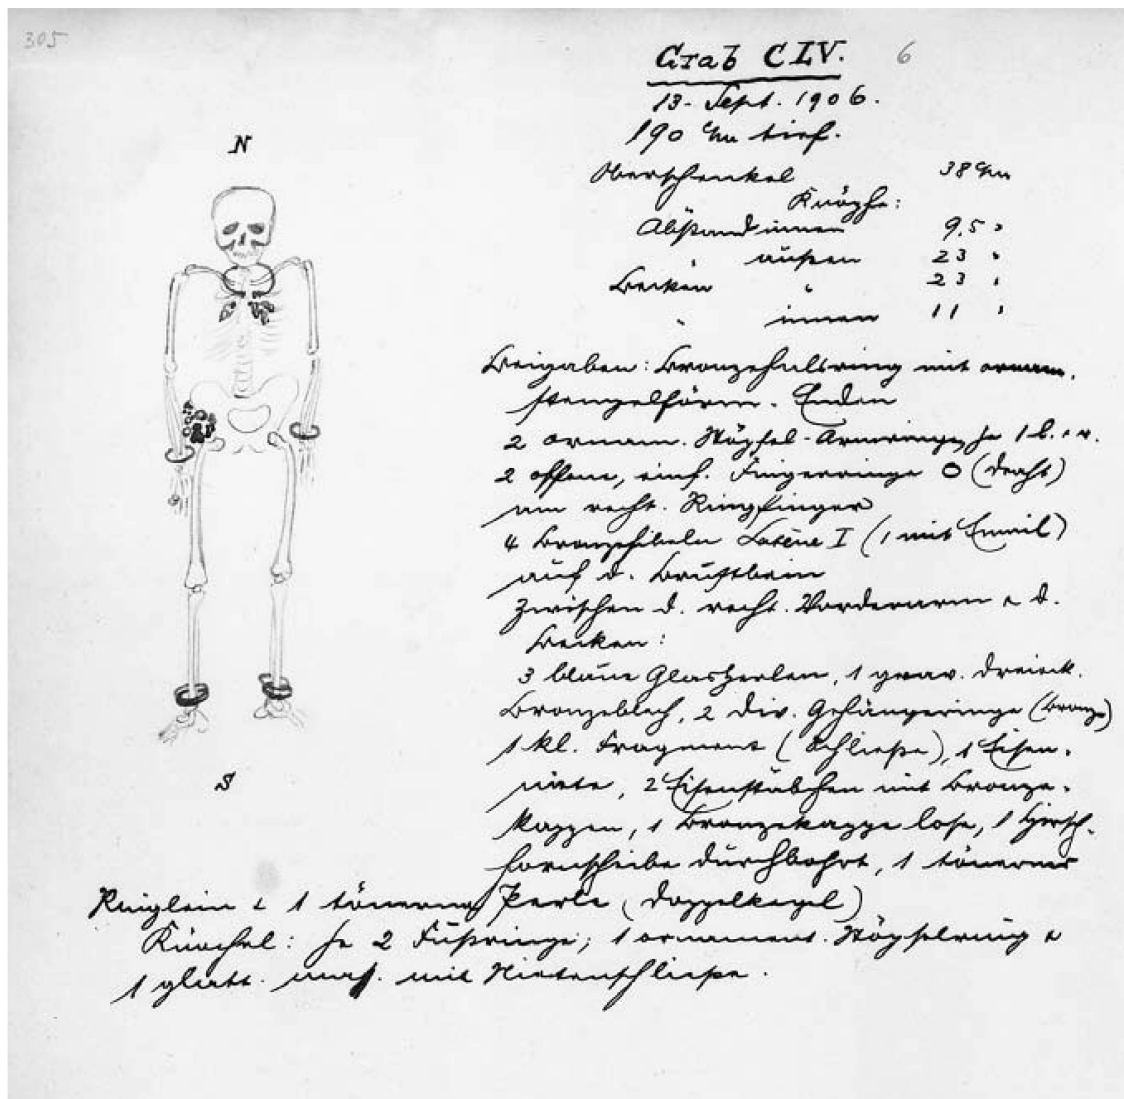 305
Grab CLV. 6
13. Sept. 1906.
190 cm tief.
N
Oberschenkel 38 cm
Knöpfe:
Abstand innen 9,5 "
außen 23 "
Becken " 23 "
" innen 11 "
Beigaben: Bronzehalsring mit ornam.
stempelförm. Enden
2 ornam. Stöpsel-Armringe, je 1 l. u. r.
2 offene, einf. Fingerringe O (Draht)
am recht. Ringfinger
4 Bronzefibeln Latène I (1 mit Email)
auf d. Brustbein
Zwischen d. recht. Vorderarm u. d.
Becken:
3 blaue Glasperlen, 1 grav. dreieck.
Bronzeblech, 2 div. Gehängeringe (Bronze)
1 kl. Fragment (Schließe), 1 Eisen-
niete, 2 Eisenstäbchen mit Bronze-
kappen, 1 Bronzekappe lose, 1 Hirsch-
hornscheibe durchbohrt, 1 tönernes
S
Ringlein & 1 tönerne Perle (Doppelkegel)
Knöchel: Je 2 Fußringe; 1 ornament. Stöpselring &
1 glatt. mass. mit Nietenschließe.